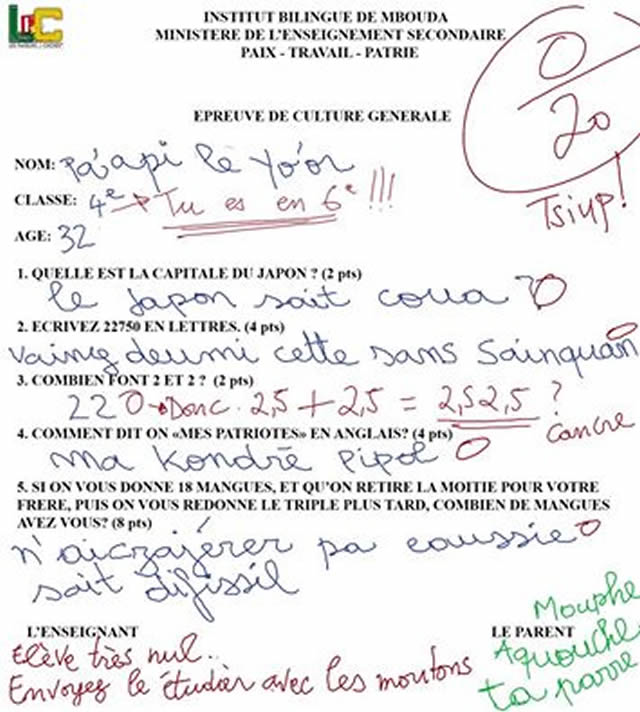 INSTITUT BILINGUE DE MBOUDA
MINISTERE DE L'ENSEIGNEMENT SECONDAIRE
PAIX - TRAVAIL - PATRIE
0
20
Tsiup!
EPREUVE DE CULTURE GENERALE
NOM: Pa'api le yo'or
CLASSE: 4e Tu es en 6e !!!
AGE: 32
1. QUELLE EST LA CAPITALE DU JAPON ? (2 pts)
le Japon sait coua ? 0
2. ECRIVEZ 22750 EN LETTRES. (4 pts)
vaing deumi cette sans Sainquan 0
3. COMBIEN FONT 2 ET 2 ? (2 pts)
22 0 Donc. 2,5 + 2,5 = 2,52,5 ?
cancre
4. COMMENT DIT ON «MES PATRIOTES» EN ANGLAIS? (4 pts)
Ma Kondrē Pipol 0
5. SI ON VOUS DONNE 18 MANGUES, ET QU'ON RETIRE LA MOITIE POUR VOTRE
FRERE, PUIS ON VOUS REDONNE LE TRIPLE PLUS TARD, COMBIEN DE MANGUES
AVEZ VOUS? (8 pts)
n'aiczajérer pa caussie 0
sait difissil
L'ENSEIGNANT
Elève très nul..
Envoyez le étudier avec les moutons
LE PARENT
Mouphe
Aquouche
ta parre